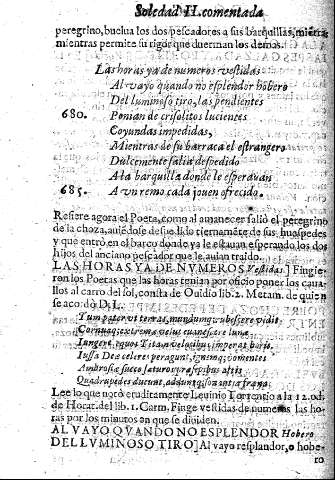 Soledad II. comentada
peregrino, buelua los dos pescadores a sus barquillas, mientras
mientras permite su rigor que duerman los demas.
Las horas ya de numeros vestidas
Al vayo quando no esplendor hobero
Del luminoso tiro, las pendientes
680. Ponian de crisolitos lucientes
Coyundas impedidas,
Mientras de su barraca el estrangero
Dulcemente salia despedido
A la barquilla donde le esperauan
685. A vn remo cada jouen ofrecido.
Refiere agora el Poeta, como al amanecer salió el peregrino
de la choza, auiédose despedido tiernaméte de sus huespedes
y que entró en el barco donde ya le estauan esperando los dos
hijos del anciano pescador que le auian traido.
LAS HORAS YA DE NVMEROS Vestidas.] Fingie-
ron los Poetas que las horas tenian por oficio poner los caua-
llos al carro del sol, consta de Ouidio lib. 2. Metam. de quien
se acordò D. L.
Tum pater vt terras, mundumq; rubescere vidit
Cornuaq; extremæ velut euanescere lunæ
Iungere equos Titan velocibus imperat horis.
Iussa Deæ celeres peragunt, ignemq; vomentes
Ambrosiæ succo saturos præsepibus altis
Quadrupedes ducunt, adduntq; sonantia fræna.
Lee lo que notò eruditamente Leuinio Torrentio a la 12. od.
de Horat. del lib. 1. Carm, Finge vestidas de numeros las ho-
ras por los minutos en que se diuiden.
AL VAYO QVANDO NO ESPLENDOR Hobero
DEL LVMINOSO TIRO] Al vayo resplandor, o hobe-
ro